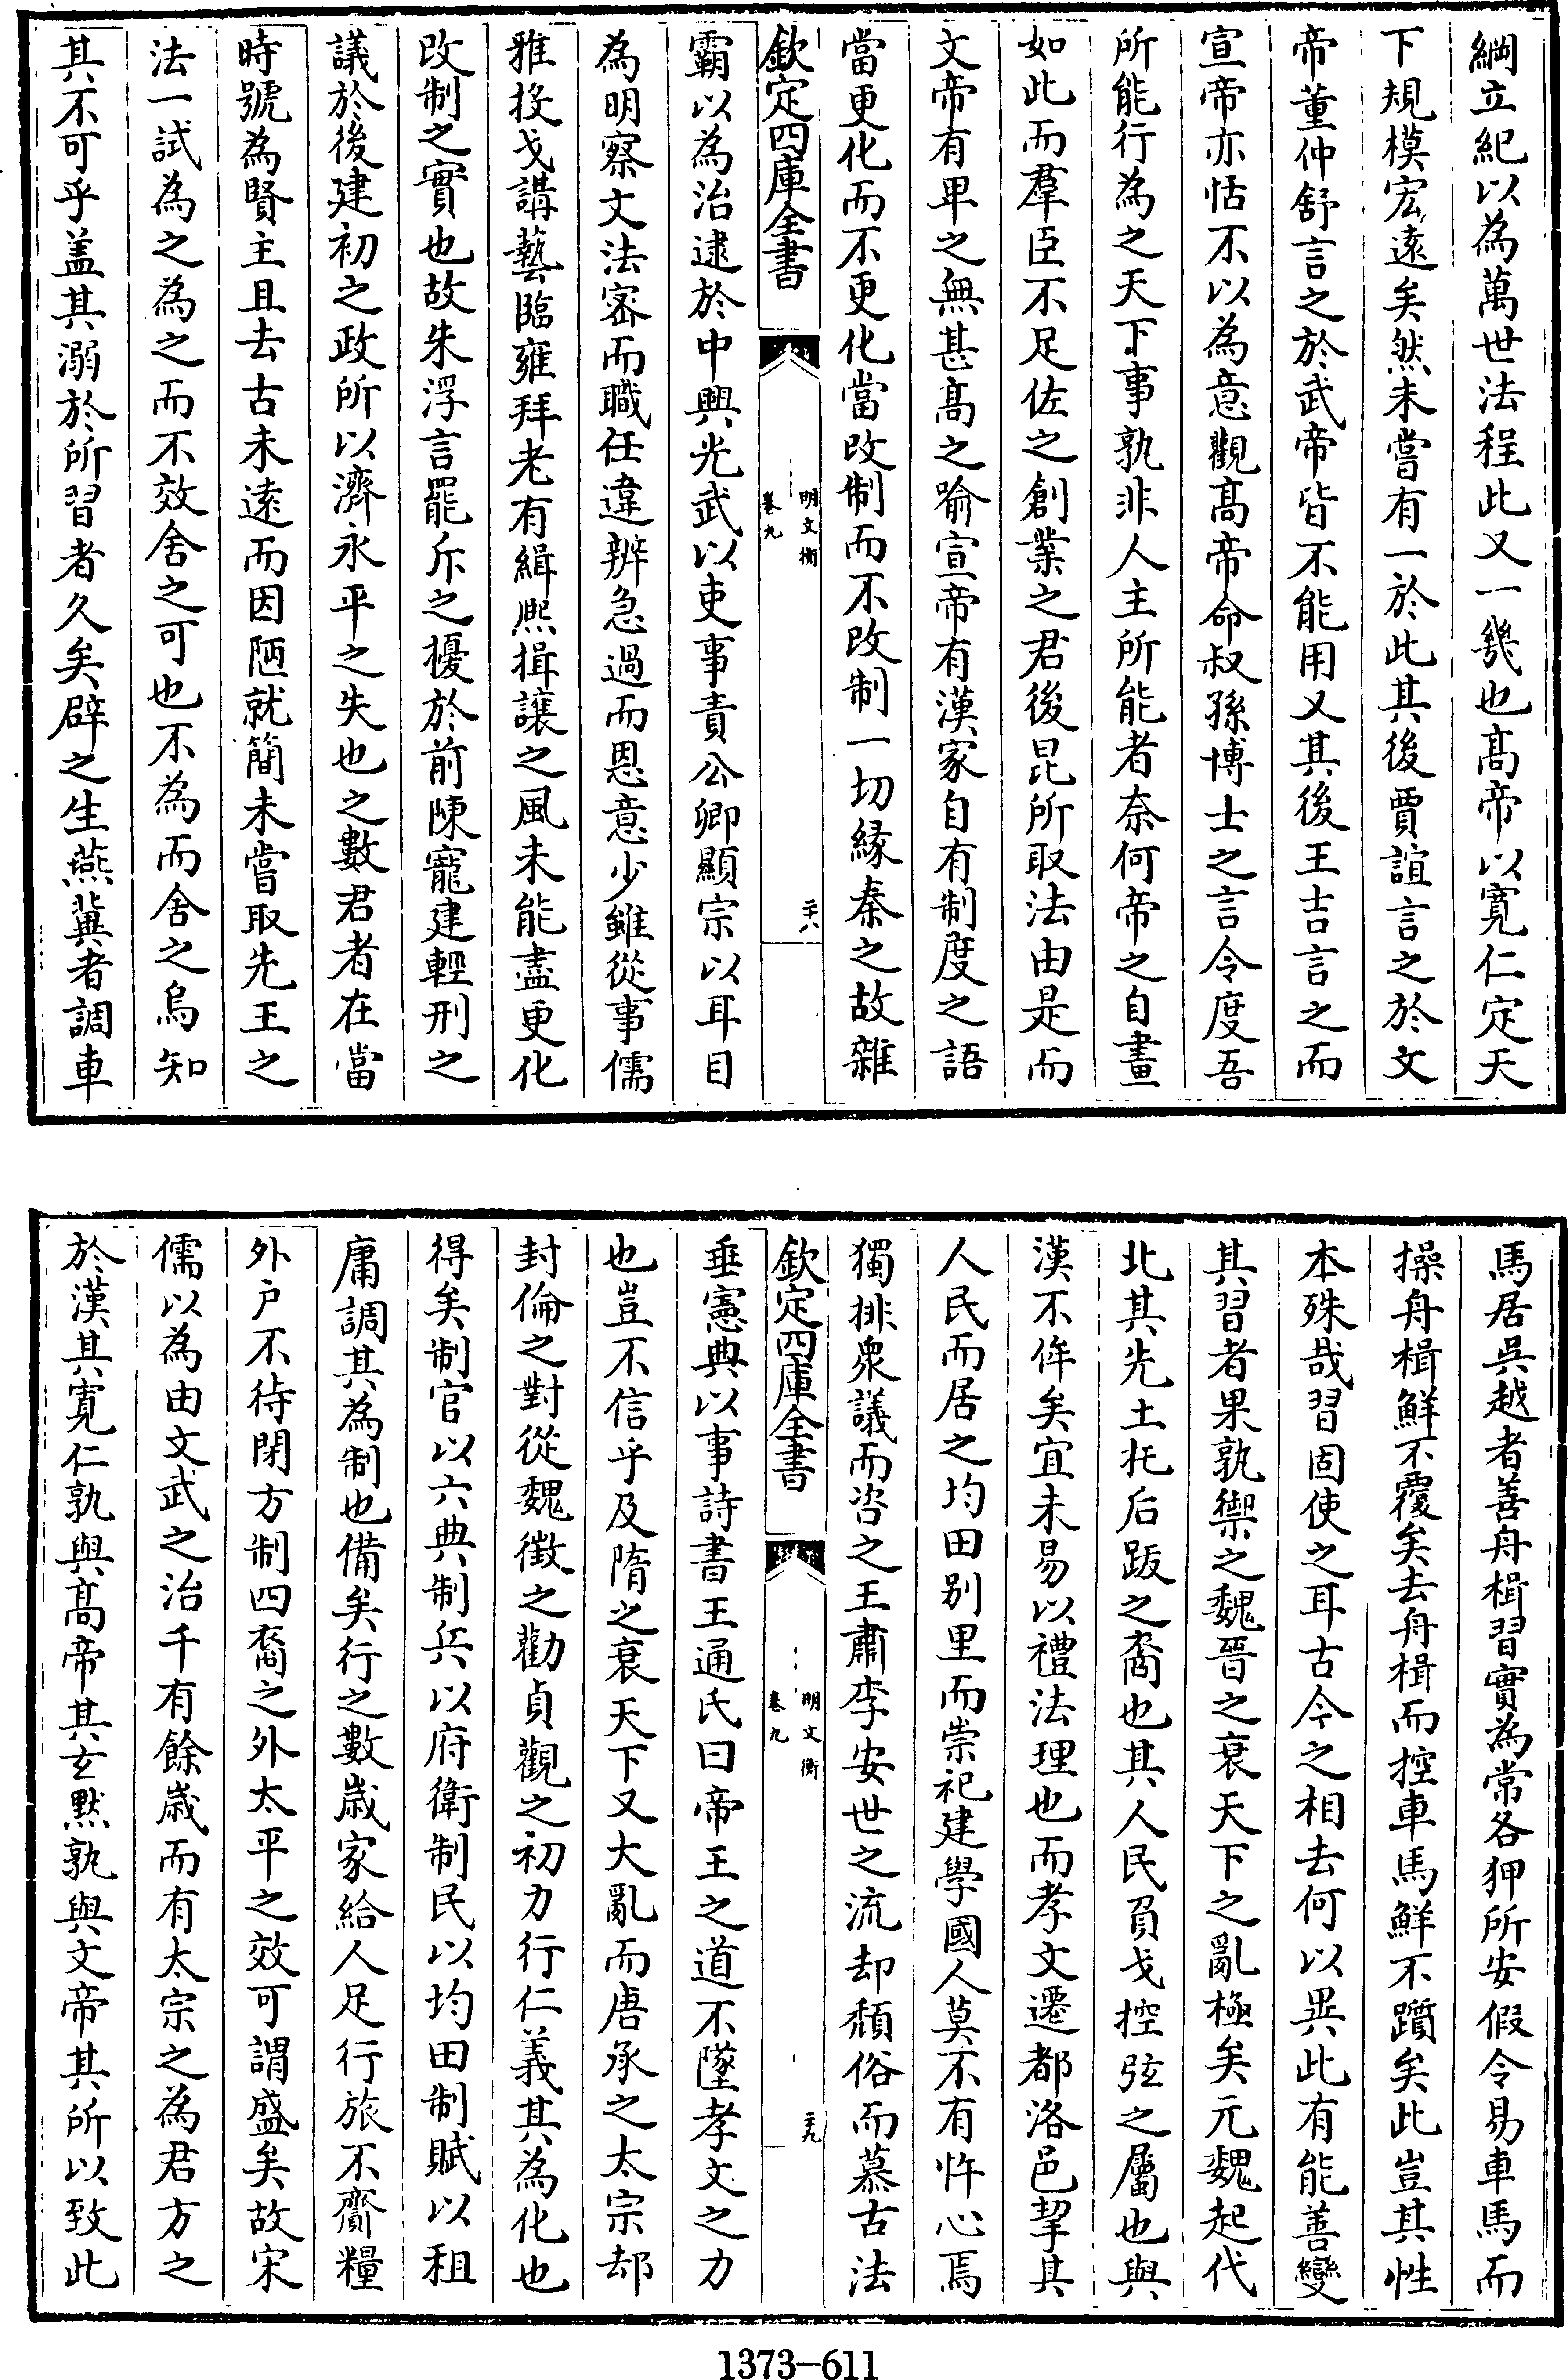 綱立紀以為萬世法程此又一幾也髙帝以寛仁定天
下規模宏遠矣然未嘗有一於此其後賈誼言之於文
帝董仲舒言之於武帝皆不能用又其後王吉言之而
宣帝亦恬不以為意觀髙帝命叔孫博士之言令度吾
所能行為之天下事孰非人主所能者奈何帝之自畫
如此而羣臣不足佐之創業之君後昆所取法由是而
文帝有卑之無甚髙之喻宣帝有漢家自有制度之語
當更化而不更化當改制而不改制一切縁秦之故雜
欽定四庫全書
明文衡
卷九
二十八
霸以為治逮於中興光武以吏事責公卿顯宗以耳目
為明察文法宻而職任違辨急過而恩意少雖從事儒
雅投戈講藝臨雍拜老有緝熙揖讓之風未能盡更化
改制之實也故朱浮言罷斥之擾於前陳寵建輕刑之
議於後建初之政所以濟永平之失也之數君者在當
時號為賢主且去古未逺而因陋就簡未嘗取先王之
法一試為之為之而不效舍之可也不為而舍之烏知
其不可乎盖其溺於所習者久矣辟之生燕冀者調車
馬居吳越者善舟楫習實為常各狎所安假令易車馬而
操舟楫鮮不覆矣去舟楫而控車馬鮮不躓矣此豈其性
本殊哉習固使之耳古今之相去何以異此有能善變
其習者果孰禦之魏晉之衰天下之亂極矣元魏起代
北其先土托后跋之裔也其人民負戈控弦之屬也與
漢不侔矣宜未易以禮法理也而孝文遷都洛邑挈其
人民而居之均田别里而崇祀建學國人莫不有忤心焉
獨排衆議而咨之王肅李安世之流却頽俗而慕古法
欽定四庫全書
明文衡
卷九
二十九
垂憲典以事詩書王通氏曰帝王之道不墜孝文之力
也豈不信乎及隋之衰天下又大亂而唐承之太宗却
封倫之對從魏徵之勸貞觀之初力行仁義其為化也
得矣制官以六典制兵以府衛制民以均田制賦以租
庸調其為制也備矣行之數歳家給人足行旅不齎糧
外户不待閉方制四裔之外太平之效可謂盛矣故宋
儒以為由文武之治千有餘歳而有太宗之為君方之
於漢其寛仁孰與髙帝其玄黙孰與文帝其所以致此
1373-611